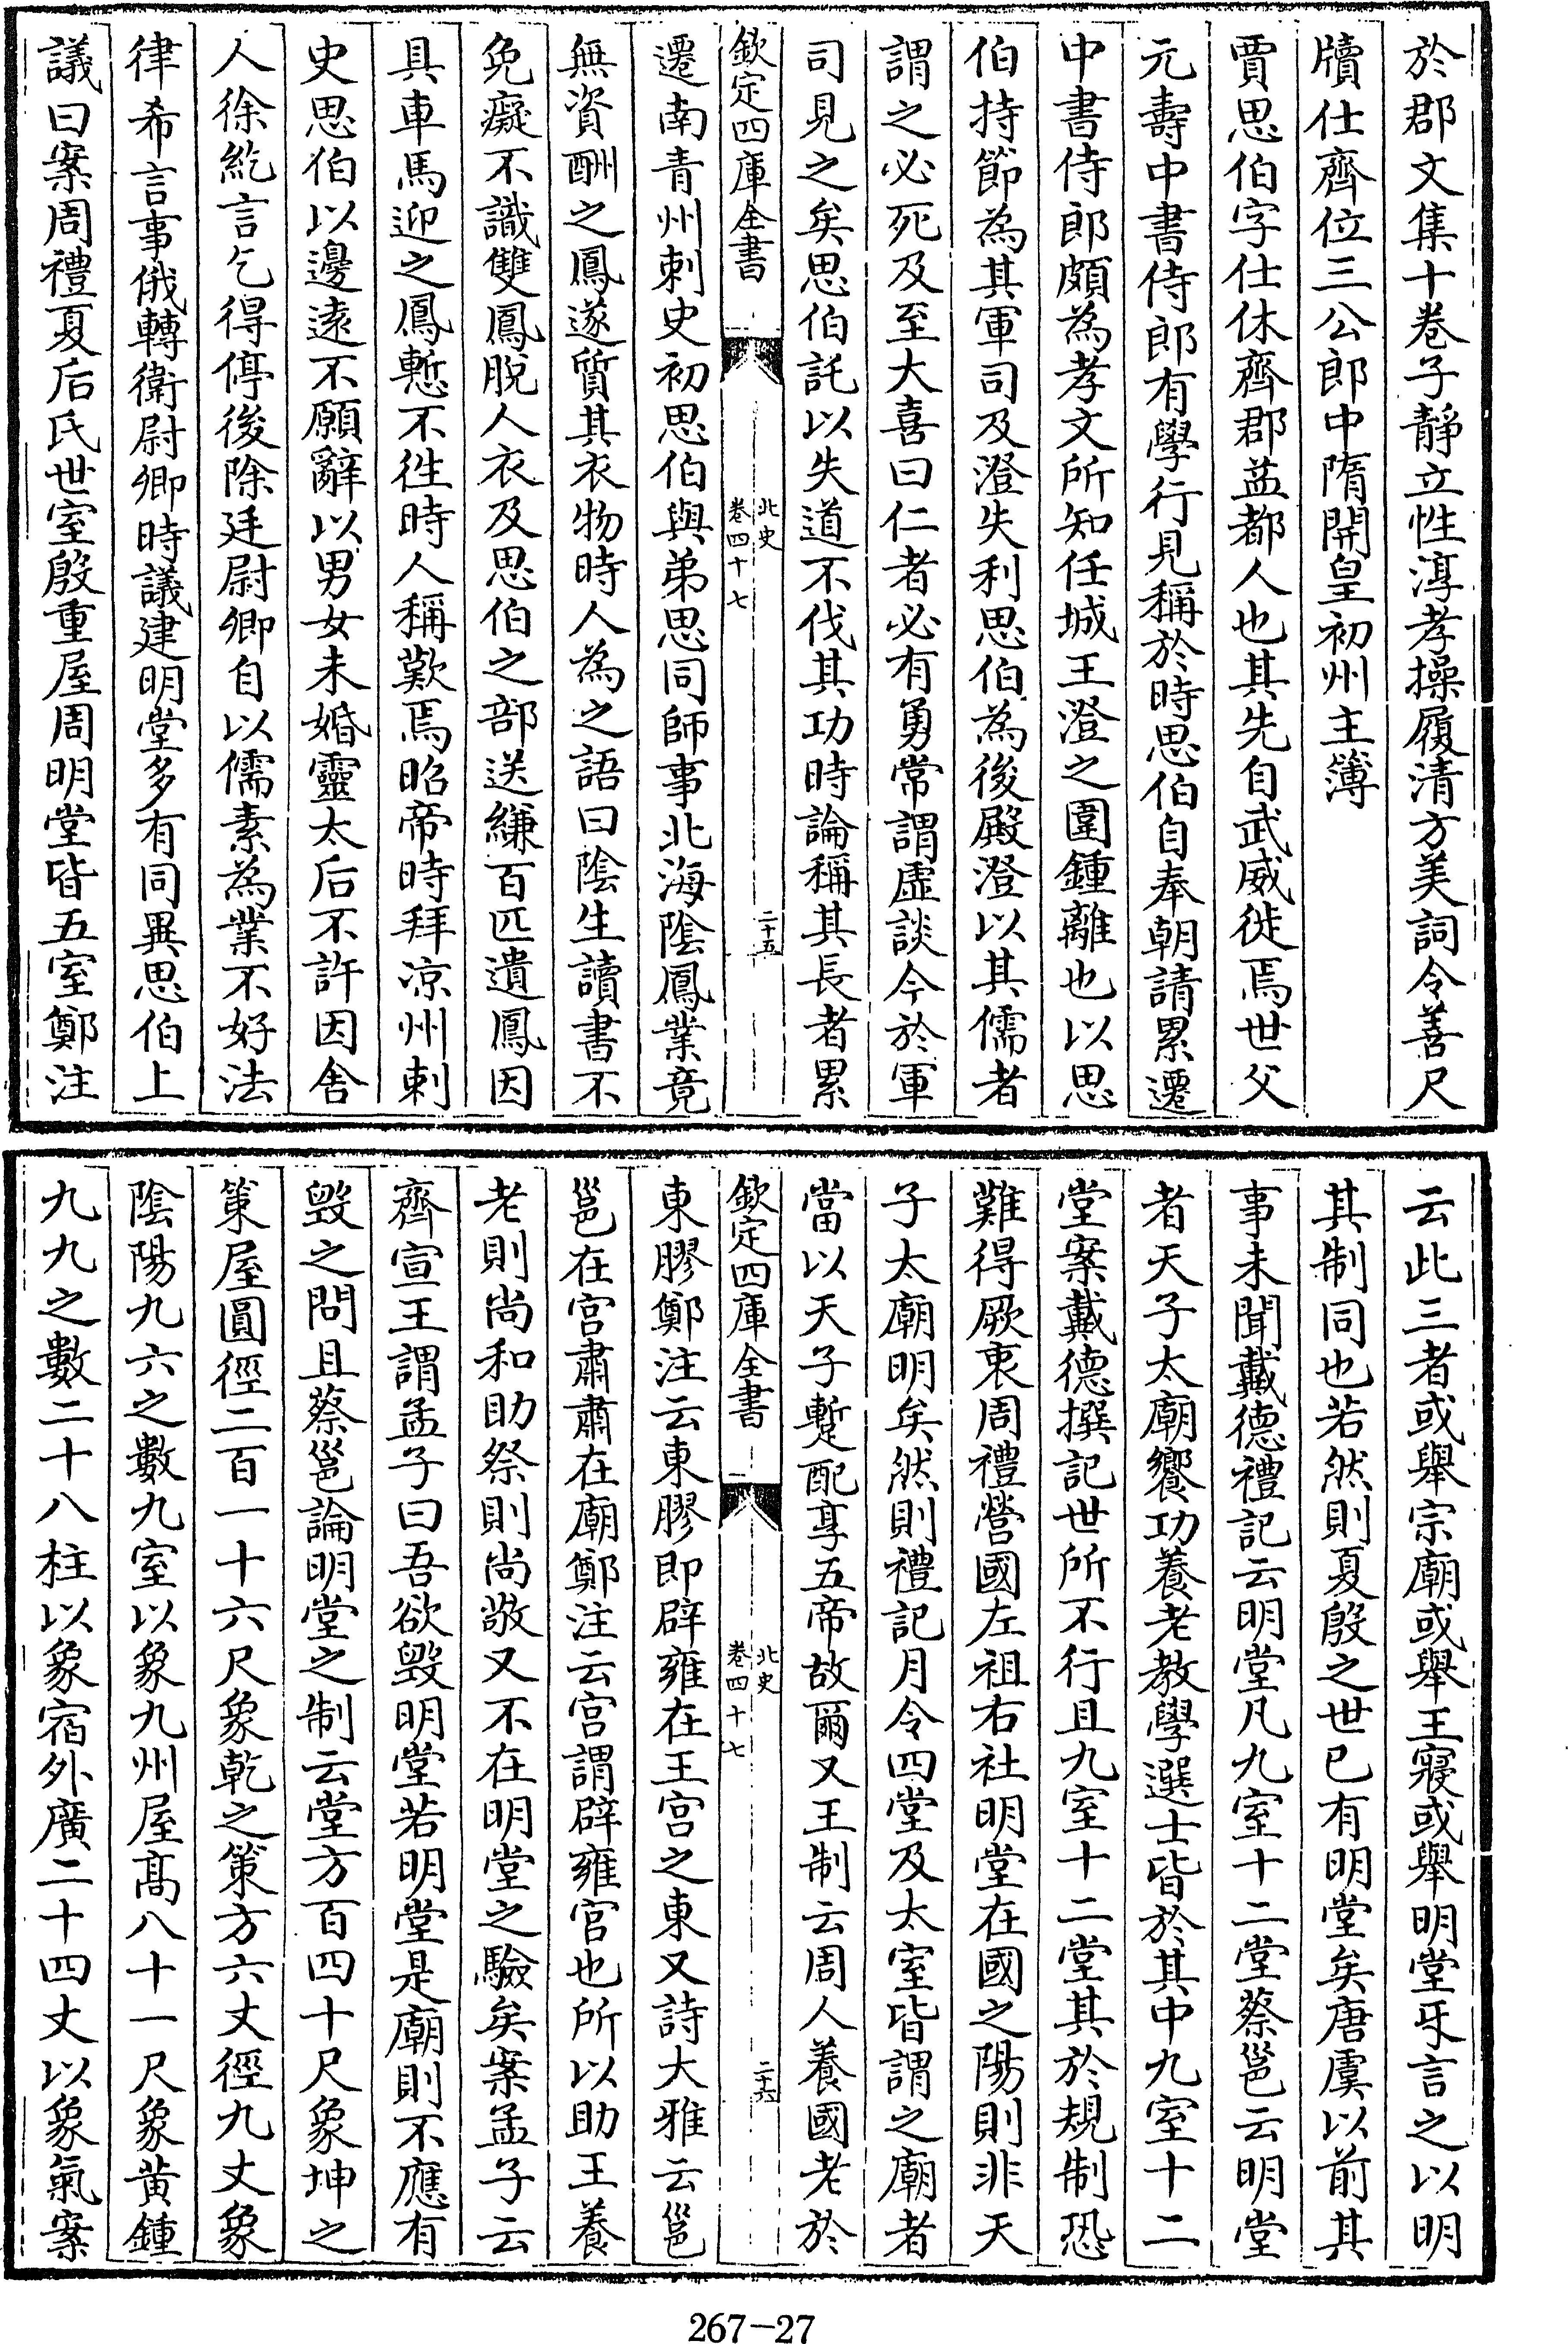 於郡文集十卷子靜立性淳孝操履清方美詞令善尺
牘仕齊位三公郎中隋開皇初州主簿
賈思伯字仕休齊郡益都人也其先自武威徙焉世父
元壽中書侍郎有學行見稱於時思伯自奉朝請累遷
中書侍郎頗為孝文所知任城王澄之圍鍾離也以思
伯持節為其軍司及澄失利思伯為後殿澄以其儒者
謂之必死及至大喜曰仁者必有勇常謂虛談今於軍
司見之矣思伯託以失道不伐其功時論稱其長者累
欽定四庫全書
北史
卷四十七
二十五
遷南青州刺史初思伯與弟思同師事北海陰鳳業竟
無資酬之鳳遂質其衣物時人為之語曰陰生讀書不
免癡不識雙鳳脫人衣及思伯之部送縑百匹遺鳳因
具車馬迎之鳳慙不徃時人稱歎焉昭帝時拜凉州刺
史思伯以邊遠不願辭以男女未婚靈太后不許因舍
人徐紇言乞得停後除廷尉卿自以儒素為業不好法
律希言事俄轉衛尉卿時議建明堂多有同異思伯上
議曰案周禮夏后氏世室殷重屋周明堂皆五室鄭注
云此三者或舉宗廟或舉王寢或舉明堂互言之以明
其制同也若然則夏殷之世已有明堂矣唐虞以前其
事未聞戴德禮記云明堂凡九室十二堂蔡邕云明堂
者天子太廟饗功養老教學選士皆於其中九室十二
堂案戴德撰記世所不行且九室十二堂其於規制恐
難得厥衷周禮營國左祖右社明堂在國之陽則非天
子太廟明矣然則禮記月令四堂及太室皆謂之廟者
當以天子蹔配享五帝故爾又王制云周人養國老於
欽定四庫全書
北史
卷四十七
二十六
東膠鄭注云東膠即辟雍在王宮之東又詩大雅云邕
邕在宮肅肅在廟鄭注云宮謂辟雍宮也所以助王養
老則尚和助祭則尚敬又不在明堂之驗矣案孟子云
齊宣王謂孟子曰吾欲毀明堂若明堂是廟則不應有
毀之問且蔡邕論明堂之制云堂方百四十尺象坤之
策屋圓徑二百一十六尺象乾之策方六丈徑九丈象
陰陽九六之數九室以象九州屋高八十一尺象黃鍾
九九之數二十八柱以象宿外廣二十四丈以象氣案
267-27